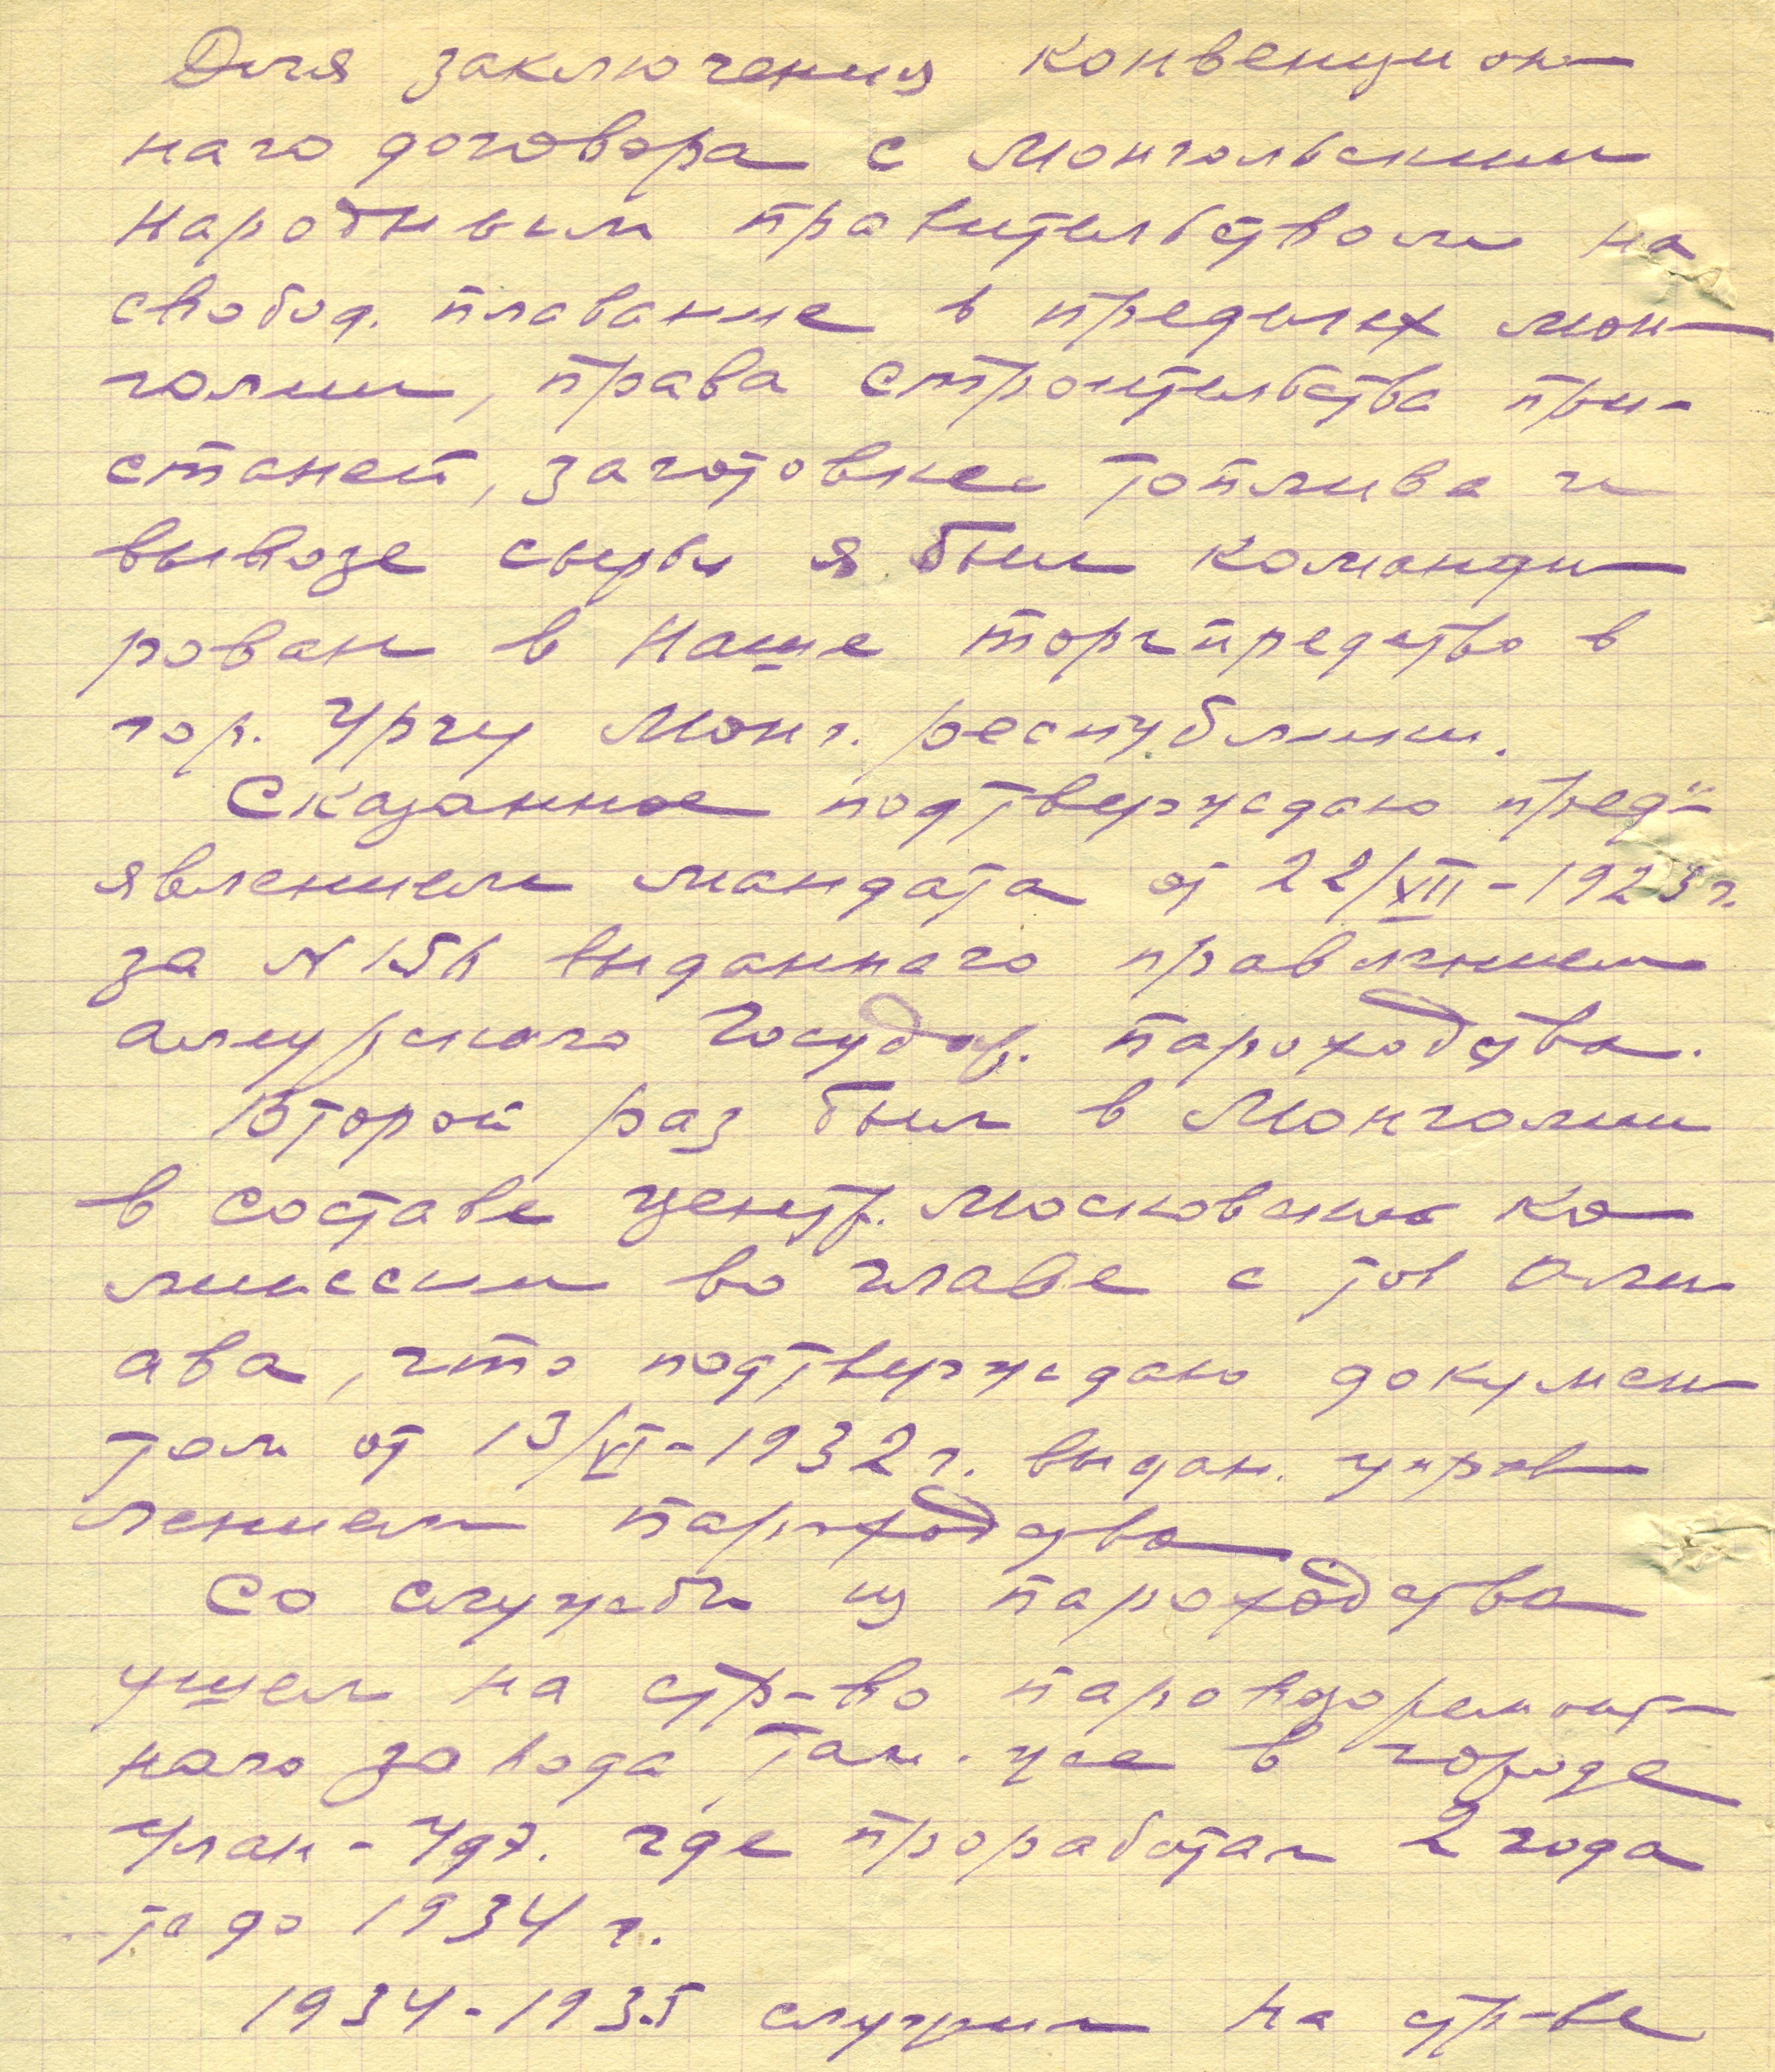 Для заключения конвенцион-
наго договора с Монгольским
народным правительством на
свобод. плавание в пределах мон-
голии, права строительства при-
станей, заготовке топлива и
вывозе сырья я был команди
рован в наше торгпредство в
гор. Ургу Монг. республики.
Сказанное подтверждаю пред"-
явлением мандата от 22/VII-1923 г.
за N 156 выданного правлением
амурского Государ. пароходства.
Второй раз был в Монголии
в составе центр. московской ко
миссии во главе с тов
ава, что подтверждаю докумен
том от 13/VI-1932 г. выдан. управ
лением пароходства
Со службы из пароходства
ушел на стр-во паровозоремонт-
ного завода, там-же в городе
Улан-Удэ. где проработал 2 года
те до 1934 г.
1934-1935 служил на стр-ве